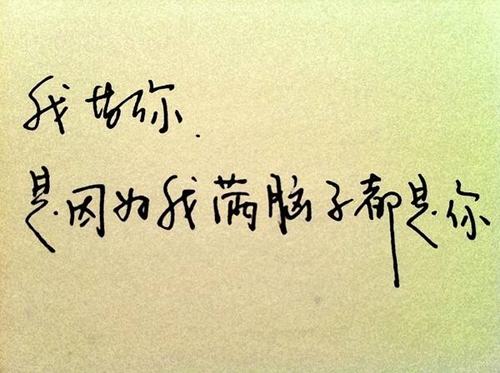 我装你.
是因为我满脑子都是你